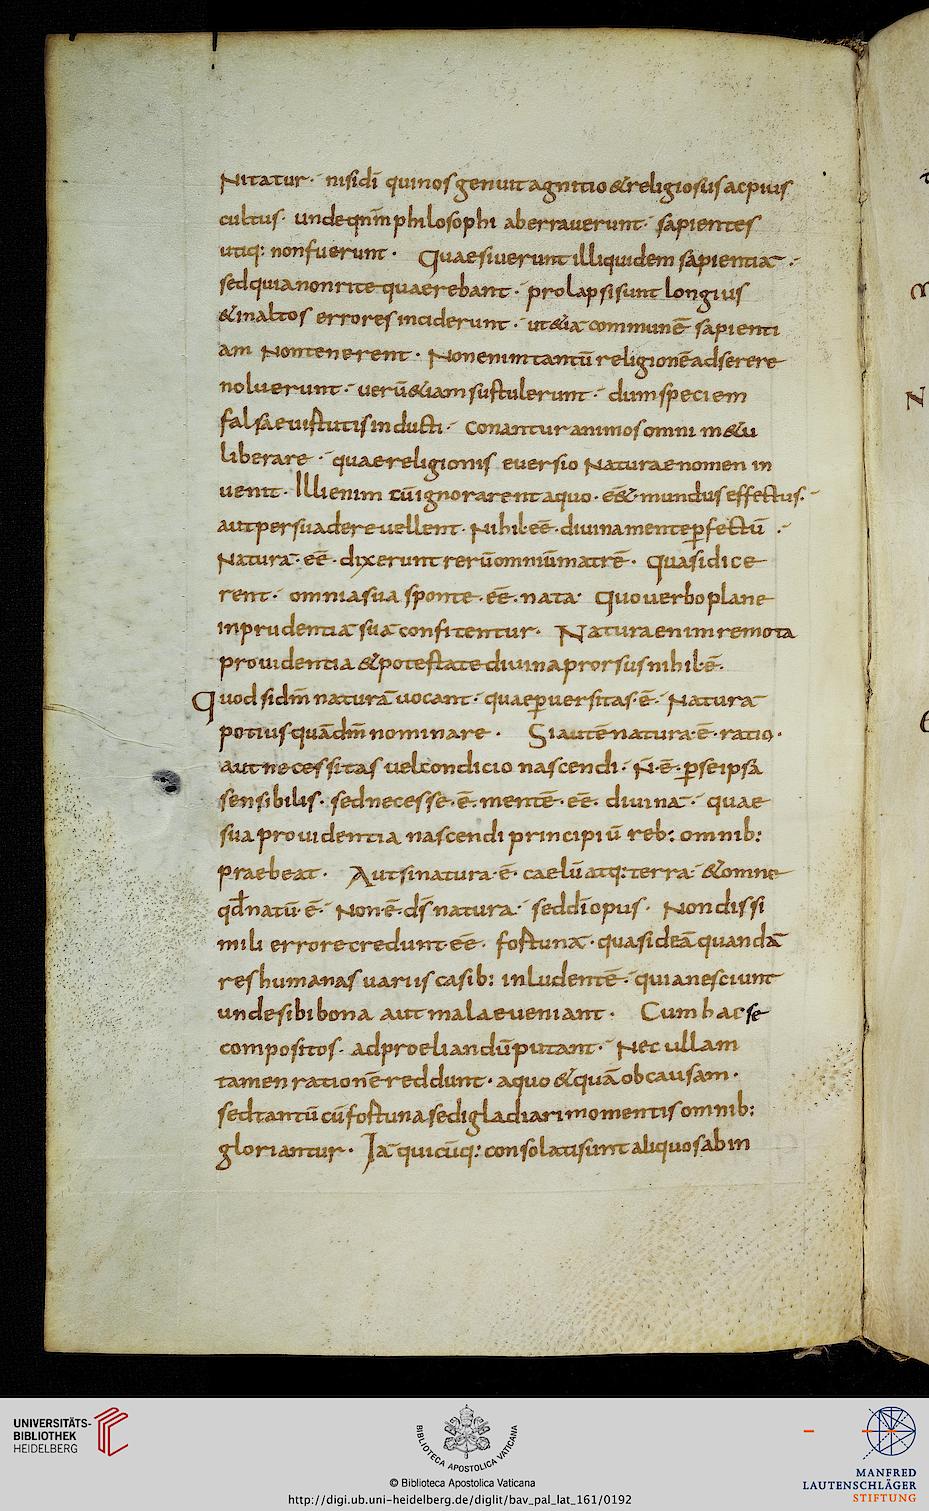 Nitatur· nisi dī qui nos genuit agnitio & religiosus ac pius
cultus· unde qm̄ philosophi aberraverunt· sapientes
utiq: non fuerunt· Quaesiverunt illi quidem sapientiā·
sed quia non rite quaerebant· prolapsi sunt longius
& in altos errores inciderunt· ut &iā communē sapienti
am Non tenerent· Non enim tantū religionē adserere
noluerunt· verū &iam sustulerunt· dum speciem
falsae virtutis inducti· conantur animos omni m&u
liberare· quae religionis eversio Naturae nomen in
venit· Illi enim cū ignorarent a quo· eē& mundus effectus·
aut persuadere vellent· Nihil eē· divina mente ꝑfectū·
Naturā· eē· dixerunt rerū omniū matrē· quasi dice
rent· omnia sua sponte· eē· nata· Quo verbo plane
inprudentiā suā confitentur· Natura enim remota
providentia & potestate divina prorsus nihil· ē·
Quod si dm̄ naturā vocant· quae ꝑversitas· ē· Naturā
potius· quā dm̄ nominare· Si autē natura· ē· ratio·
aut necessitas vel condicio nascendi· N̄· ē· ꝑ se ipsā
sensibilis· sed necesse· ē· mentē· eē· divinā· quae
sua providentia nascendi principiū reb: omnib:
praebeat· Aut si natura· ē· caelū atq: terra· & omne
qđ natū· ē· Non· ē· ds̄ natura· sed dī opus· Non dissi
mili errore credunt· eē· fortunā· quasi deā quandā
res humanas variis casib: inludentē· quia nesciunt
unde sibi bona aut mala eveniant· Cum hac se
compositos· ad proeliandū putant· Nec ullam
tamen rationē reddunt· a quo & quā ob causam·
sed tantū cū fortuna se digladiari momentis omnib:
gloriantur· Iā quicūq: consolati sunt aliquos ab in
UNIVERSITÄTS-
BIBLIOTHEK
HEIDELBERG
BIBLIOTECA APOSTOLICA VATICANA
© Biblioteca Apostolica Vaticana
http://digi.ub.uni-heidelberg.de/diglit/bav_pal_lat_161/0192
MANFRED
LAUTENSCHLÄGER
STIFTUNG